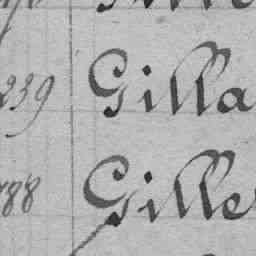 239 Gilla
788 Gille